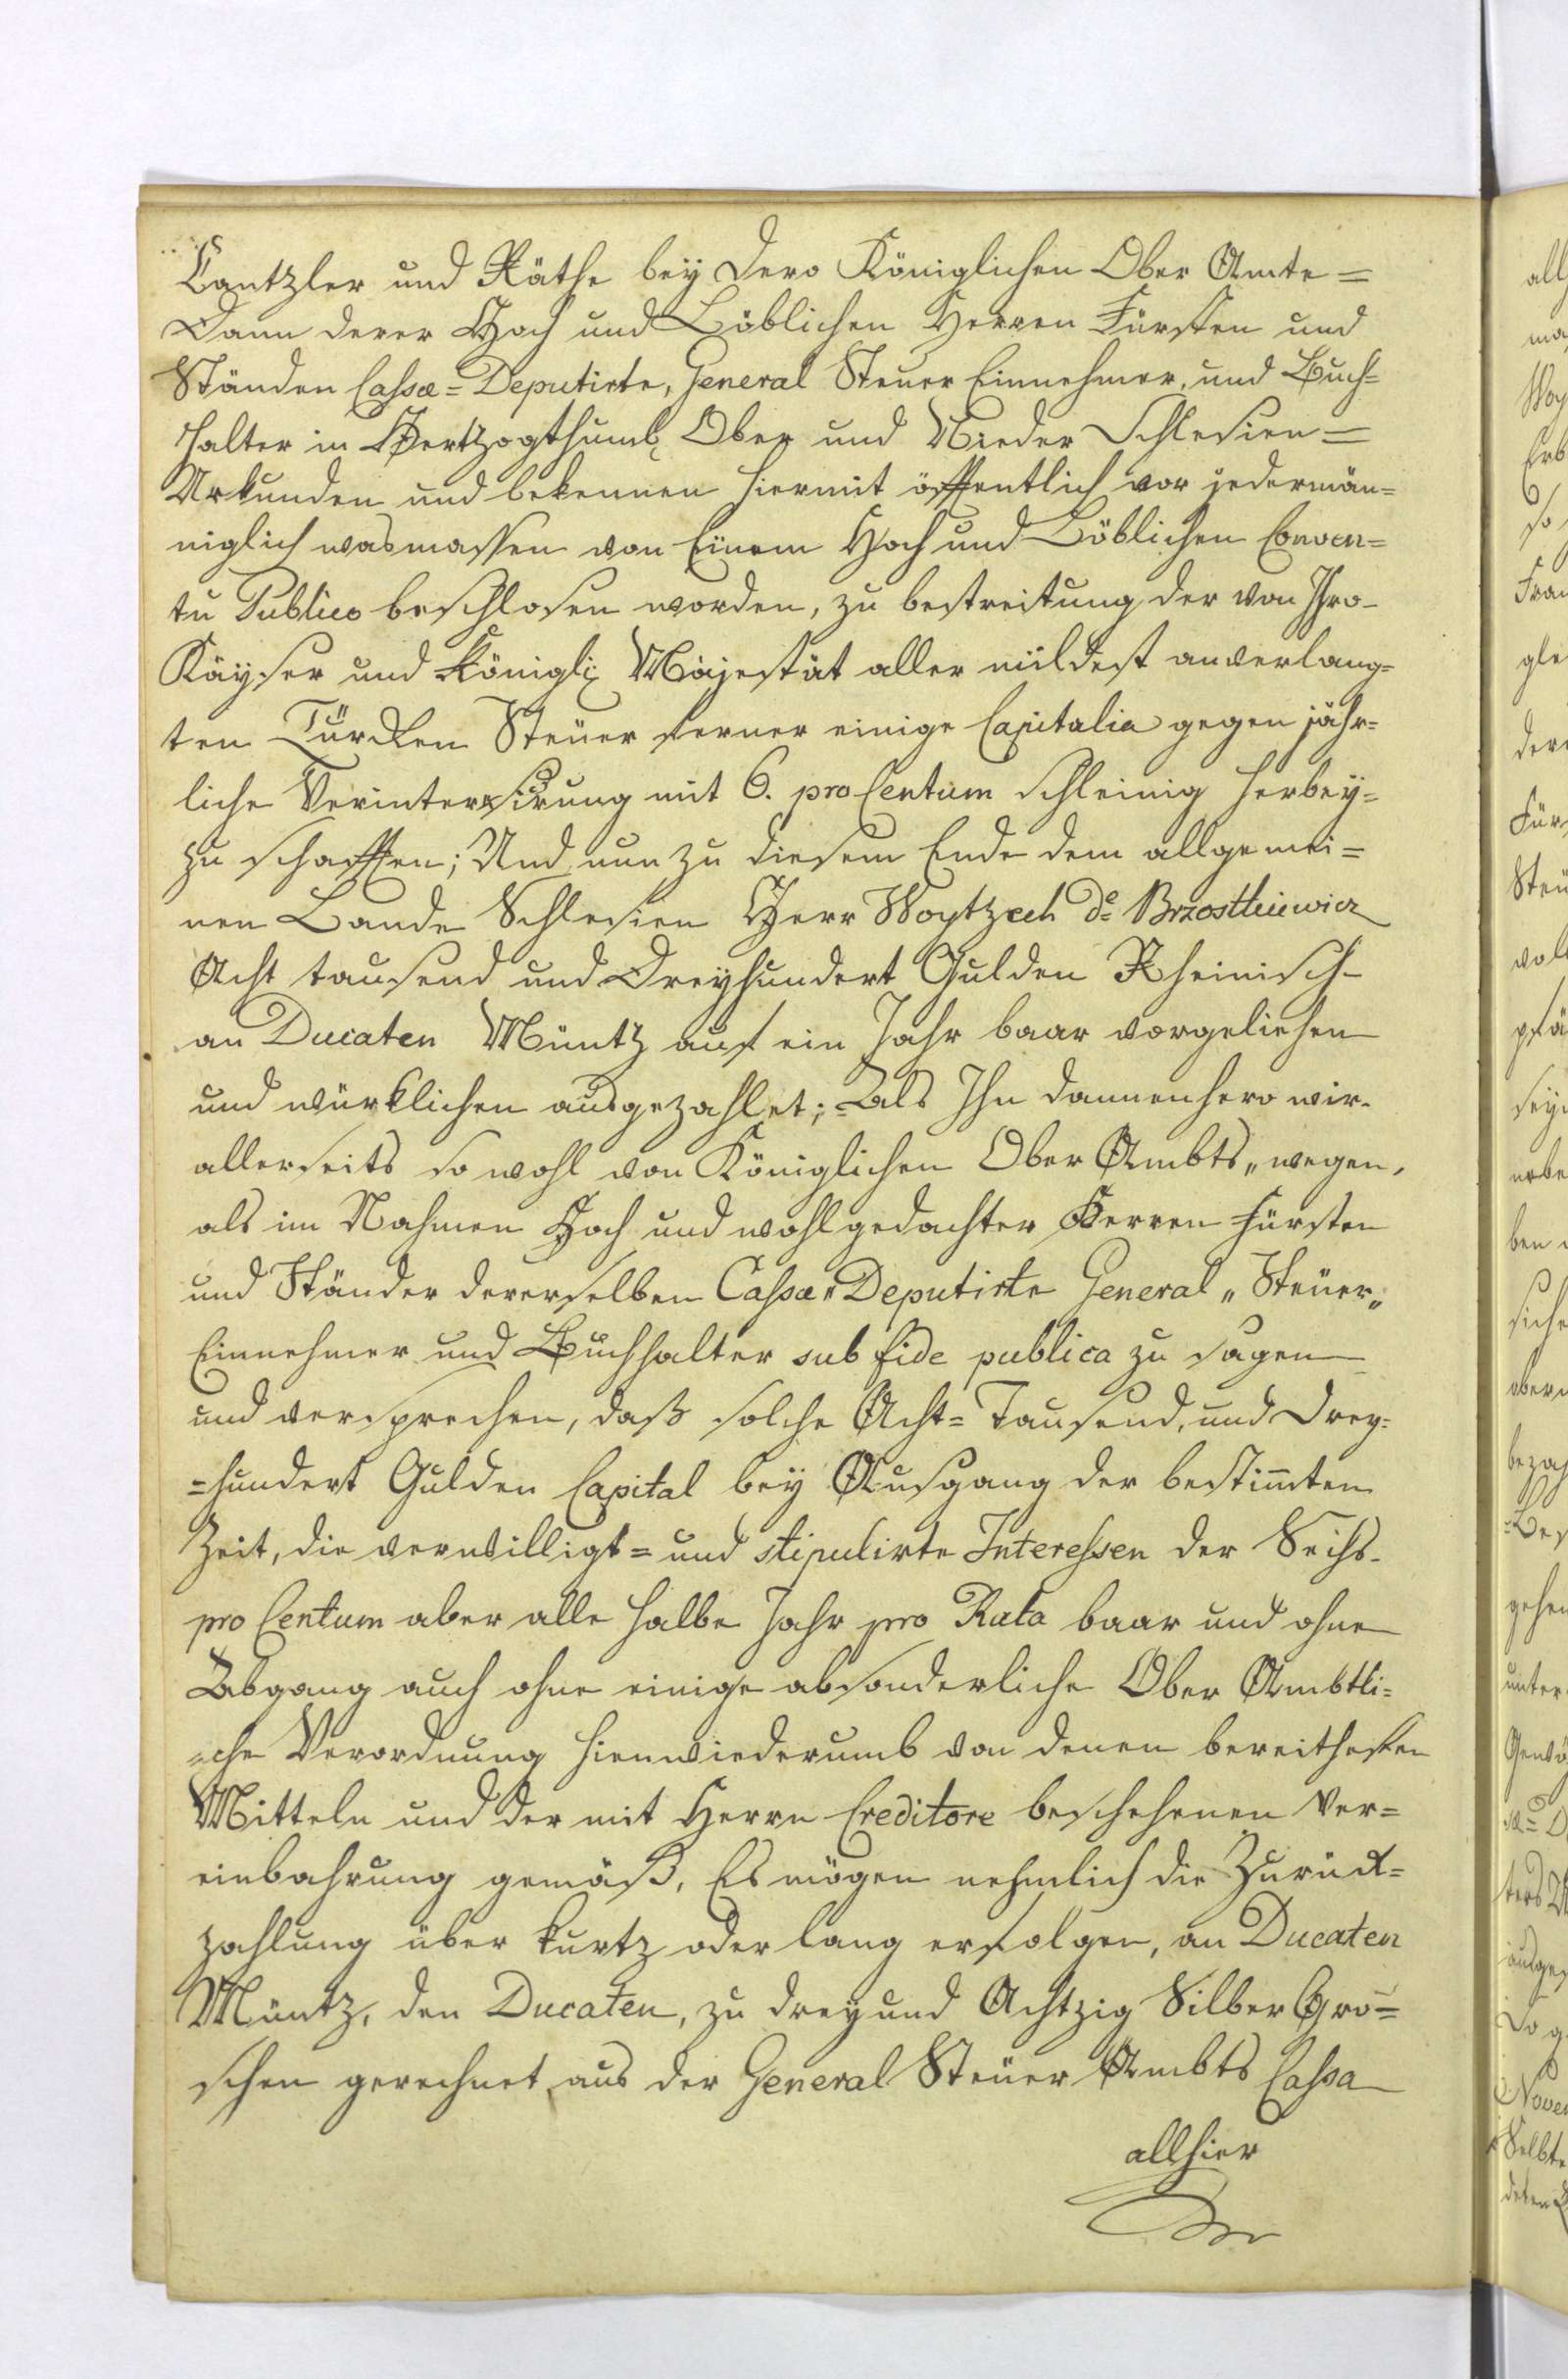 Cantzler und Räthe bey Dero Königlichen Ober Amte=
Dann derer Hoch und Löblichen Herren Fürsten und
Ständen Cassae=Deputirte, General Steuer Einnehmer, und Buch=
halter in Hertzogthumb Ober und Nieder Schlesien=
Urkunden und bekennen hiermit öffentlich vor jedermän=
niglich wasmassen von Einem Hoch und Löblichen Conven=
tu Publico beschlosen worden, zu bestreitung der von Ihro
Käyser und Königl: Majestät aller mildest anverlang=
ten Türcken Steuer ferner einige Capitalia gegen jähr=
liche Verinteressirung mit 6. pro Centum schleinig herbey=
zu schaffen; Und nun zu diesem Ende dem allgemei=
nen Lande Schlesien Herr Woytzech de
Acht tausend und Dreyhundert Gulden Rheinisch
an Ducaten Müntz auf ein Jahr baar vorgeliehen
und würklichen ausgezahlet; Als Ihn dannenhero wir
allerseits so wohl von Königlichen Ober Ambts„wegen,
als im Nahmen Hoch und wohlgedachter Herren Fürsten
und Ständer dererselben Cassae„Deputirte General„Steuer„
Einnehmer und Buchhalter sub fide publica zu sagen
und versprechen, daß solche Acht=Tausend, und Drey=
=hundert Gulden Capital bey Ausgang der bestimten
Zeit, die verwilligt= und stipulirte Interessen der Sechs
pro Centum aber alle halbe Jahr pro Rata baar und ohne
Abgang auch ohne einige absonderliche Ober Ambtli=
=che Verordnung hienwiederumb von denen bereithesten
Mitteln und der mit Herrn Creditore beschehenen Ver=
einbahrung gemäß, Es mögen nehmlich die Zurück=
zahlung über kurtz oder lang erfolgen, an Ducaten
Müntz, den Ducaten, zu drey und Achtzig Silber Gro=
schen gerechnet, aus der General Steuer Ambts Cassa
allhier